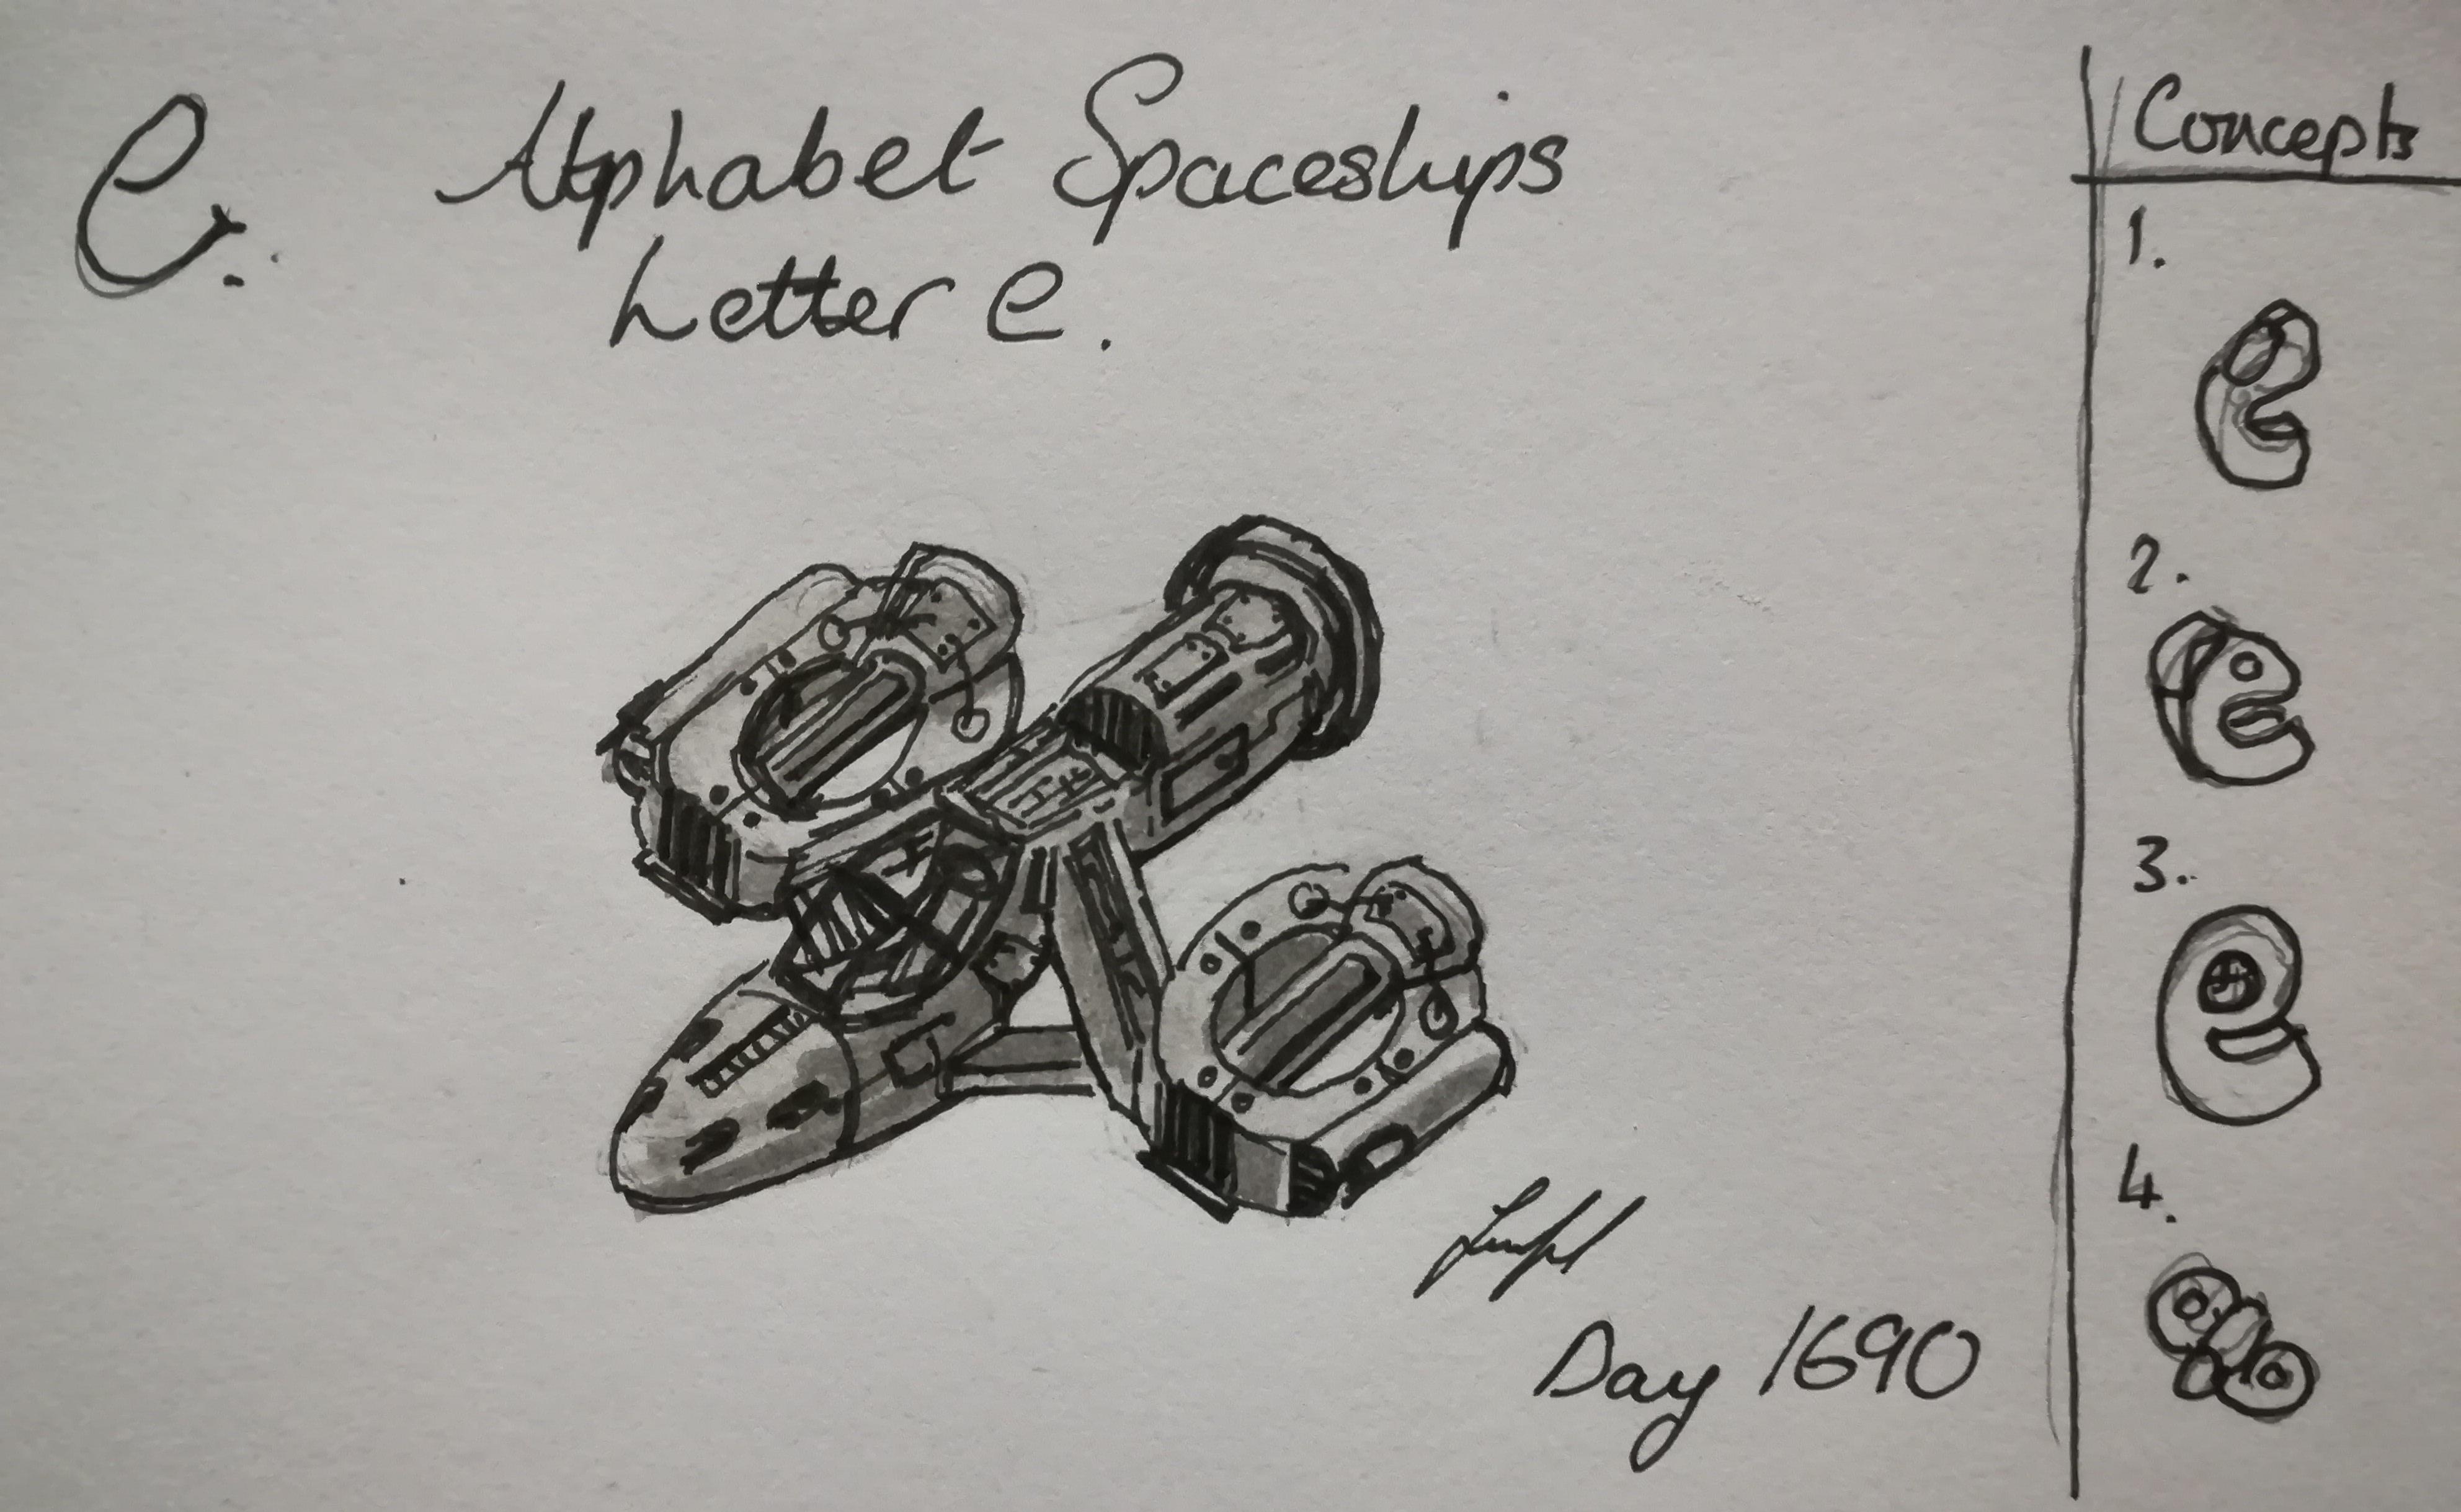 e.
Alphabet Spaceships
Letter e.
Day 1690
Concepts
1.
2.
3.
4.